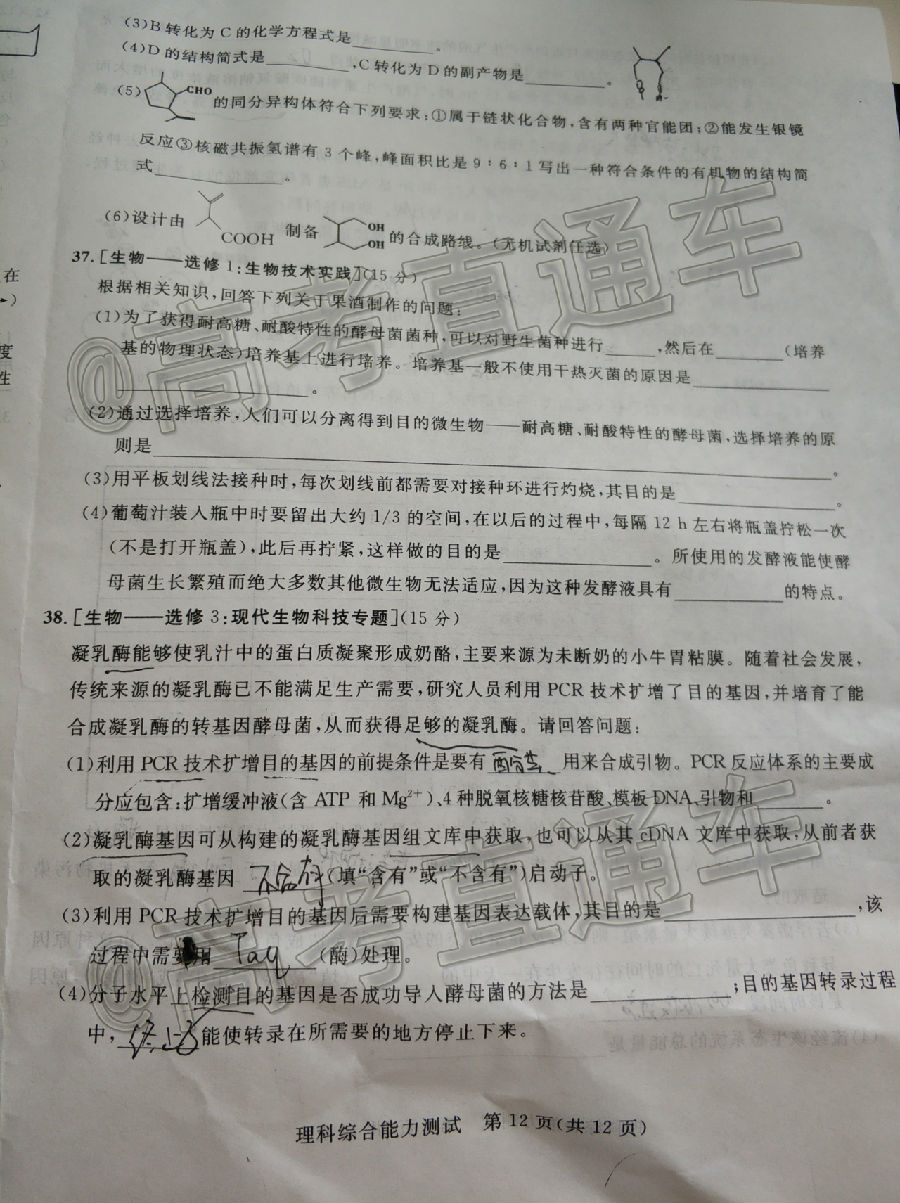 (3)B转化为C的化学方程式是________。
(4)D的结构简式是________,C转化为D的副产物是________。
(5) CHO 的同分异构体符合下列要求:①属于链状化合物,含有两种官能团;②能发生银镜
反应③核磁共振氢谱有3个峰,峰面积比是9:6:1写出一种符合条件的有机物的结构简
式________。
(6)设计由 COOH 制备 OH OH 的合成路线。(无机试剂任选)
37.[生物——选修1:生物技术实践](15分)
根据相关知识,回答下列关于果酒制作的问题:
(1)为了获得耐高糖、耐酸特性的酵母菌菌种,可以对野生菌种进行____,然后在____(培养
基的物理状态)培养基上进行培养。培养基一般不使用干热灭菌的原因是________
________。
(2)通过选择培养,人们可以分离得到目的微生物——耐高糖、耐酸特性的酵母菌,选择培养的原
则是________。
(3)用平板划线法接种时,每次划线前都需要对接种环进行灼烧,其目的是________。
(4)葡萄汁装入瓶中时要留出大约1/3的空间,在以后的过程中,每隔12 h左右将瓶盖拧松一次
(不是打开瓶盖),此后再拧紧,这样做的目的是________。所使用的发酵液能使酵
母菌生长繁殖而绝大多数其他微生物无法适应,因为这种发酵液具有________的特点。
38.[生物——选修3:现代生物科技专题](15分)
凝乳酶能够使乳汁中的蛋白质凝聚形成奶酪,主要来源为未断奶的小牛胃粘膜。随着社会发展,
传统来源的凝乳酶已不能满足生产需要,研究人员利用PCR技术扩增了目的基因,并培育了能
合成凝乳酶的转基因酵母菌,从而获得足够的凝乳酶。请回答问题:
(1)利用PCR技术扩增目的基因的前提条件是要有 用来合成引物。PCR反应体系的主要成
分应包含:扩增缓冲液(含ATP和Mg²⁺)、4种脱氧核糖核苷酸、模板DNA、引物和____。
(2)凝乳酶基因可从构建的凝乳酶基因组文库中获取,也可以从其cDNA文库中获取,从前者获
取的凝乳酶基因 不含有 (填“含有”或“不含有”)启动子。
(3)利用PCR技术扩增目的基因后需要构建基因表达载体,其目的是________,该
过程中需要用 Taq (酶)处理。
(4)分子水平上检测目的基因是否成功导入酵母菌的方法是________;目的基因转录过程
中, 能使转录在所需要的地方停止下来。
理科综合能力测试 第12页(共12页)
@高考直通车
@高考直通车